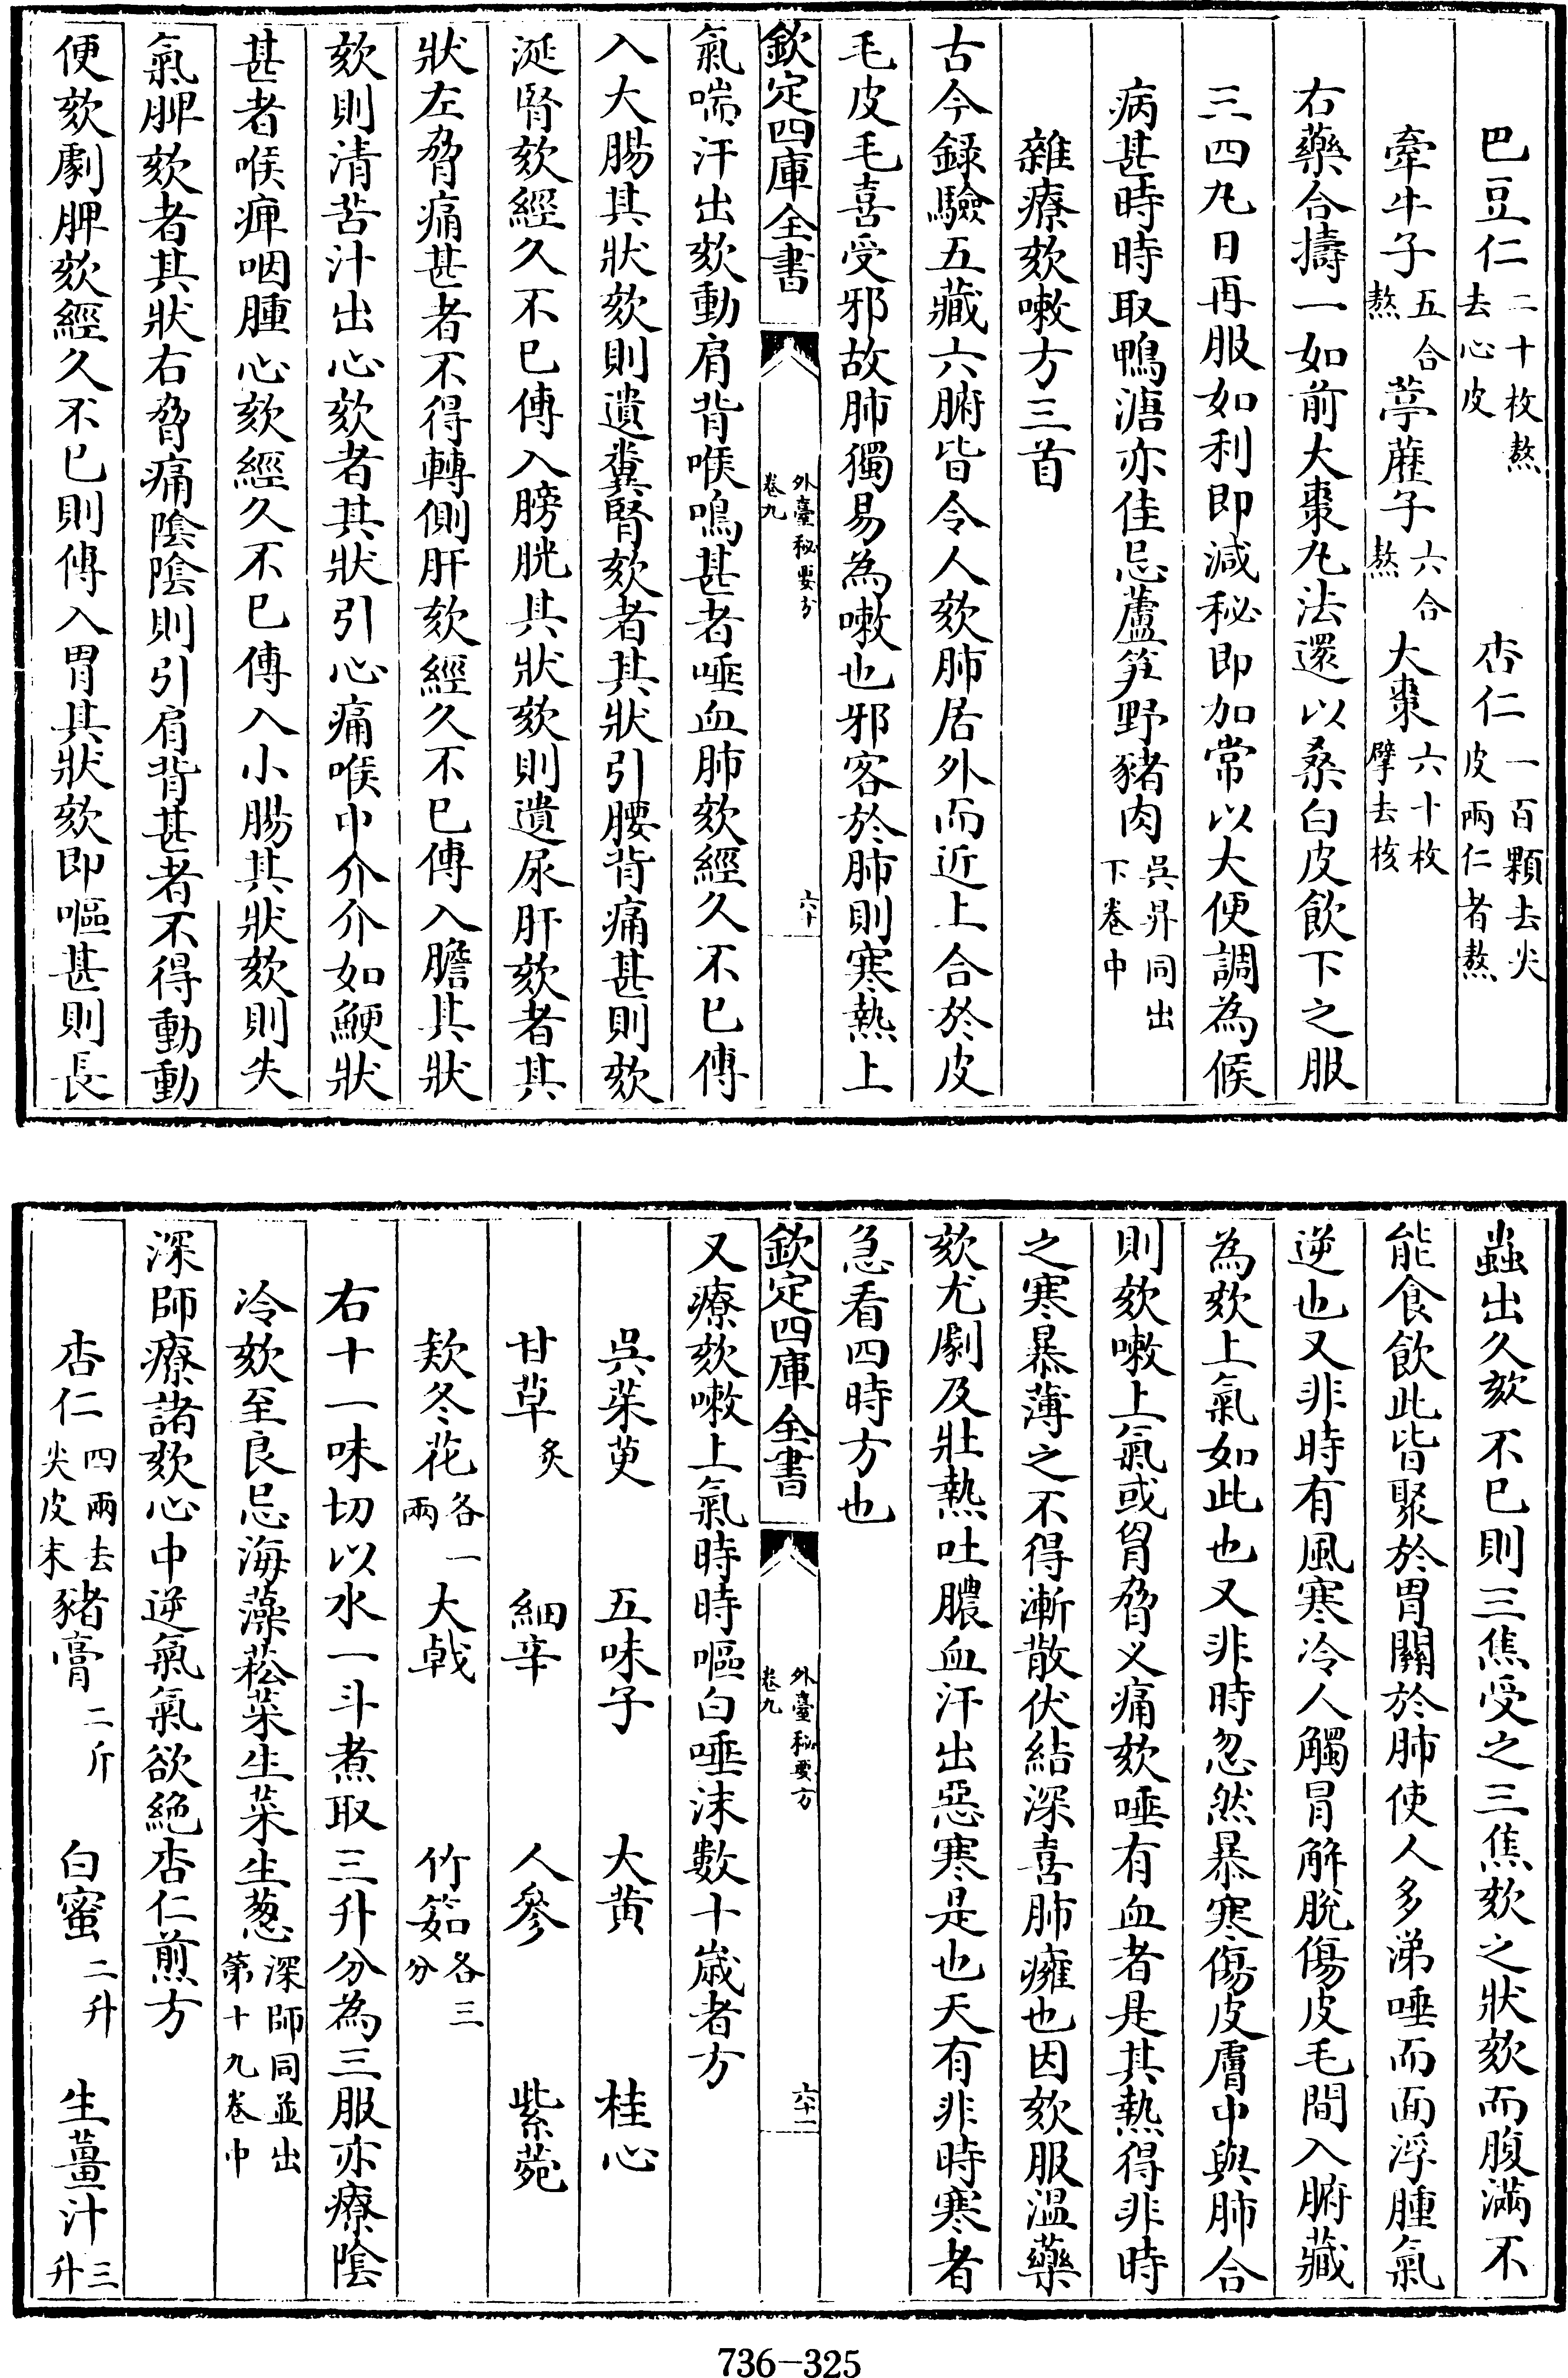 巴豆仁二十枚熬去心皮 杏仁一百顆去尖皮兩仁者熬
牽牛子五合熬 葶藶子六合熬 大棗六十枚擘去核
右藥合擣一如前大棗丸法還以桑白皮飲下之服
三四丸日再服如利即減秘即加常以大便調為候
病甚時時取鴨溏亦佳忌蘆笋野豬肉吳昇同出下卷中
雜療欬嗽方三首
古今錄驗五藏六腑皆令人欬肺居外而近上合於皮
毛皮毛喜受邪故肺獨易為嗽也邪客於肺則寒熱上
欽定四庫全書 外臺秘要方卷九 六十
氣喘汗出欬動肩背喉鳴甚者唾血肺欬經久不已傳
入大腸其狀欬則遺糞腎欬者其狀引腰背痛甚則欬
涎腎欬經久不已傳入膀胱其狀欬則遺尿肝欬者其
狀左脅痛甚者不得轉側肝欬經久不已傳入膽其狀
欬則清苦汁出心欬者其狀引心痛喉中介介如鯁狀
甚者喉痺咽腫心欬經久不已傳入小腸其狀欬則失
氣脾欬者其狀右脅痛陰陰則引肩背甚者不得動動
便欬劇脾欬經久不已則傳入胃其狀欬即嘔甚則長
蟲出久欬不已則三焦受之三焦欬之狀欬而腹滿不
能食飲此皆聚於胃關於肺使人多涕唾而面浮腫氣
逆也又非時有風寒冷人觸冒解脫傷皮毛間入腑藏
為欬上氣如此也又非時忽然暴寒傷皮膚中與肺合
則欬嗽上氣或胷脅义痛欬唾有血者是其熱得非時
之寒暴薄之不得漸散伏結深喜肺癰也因欬服溫藥
欬尤劇及壯熱吐膿血汗出惡寒是也天有非時寒者
急看四時方也
欽定四庫全書 外臺秘要方卷九 六十一
又療欬嗽上氣時時嘔白唾沫數十歲者方
吳茱萸 五味子 大黃 桂心
甘草炙 細辛 人參 紫菀
欵冬花各一兩 大戟 竹筎各三分
右十一味切以水一斗煮取三升分為三服亦療陰
冷欬至良忌海藻菘菜生菜生葱深師同並出第十九卷中
深師療諸欬心中逆氣氣欲絶杏仁煎方
杏仁四兩去尖皮末 豬膏二斤 白蜜二升 生薑汁三升
736-325